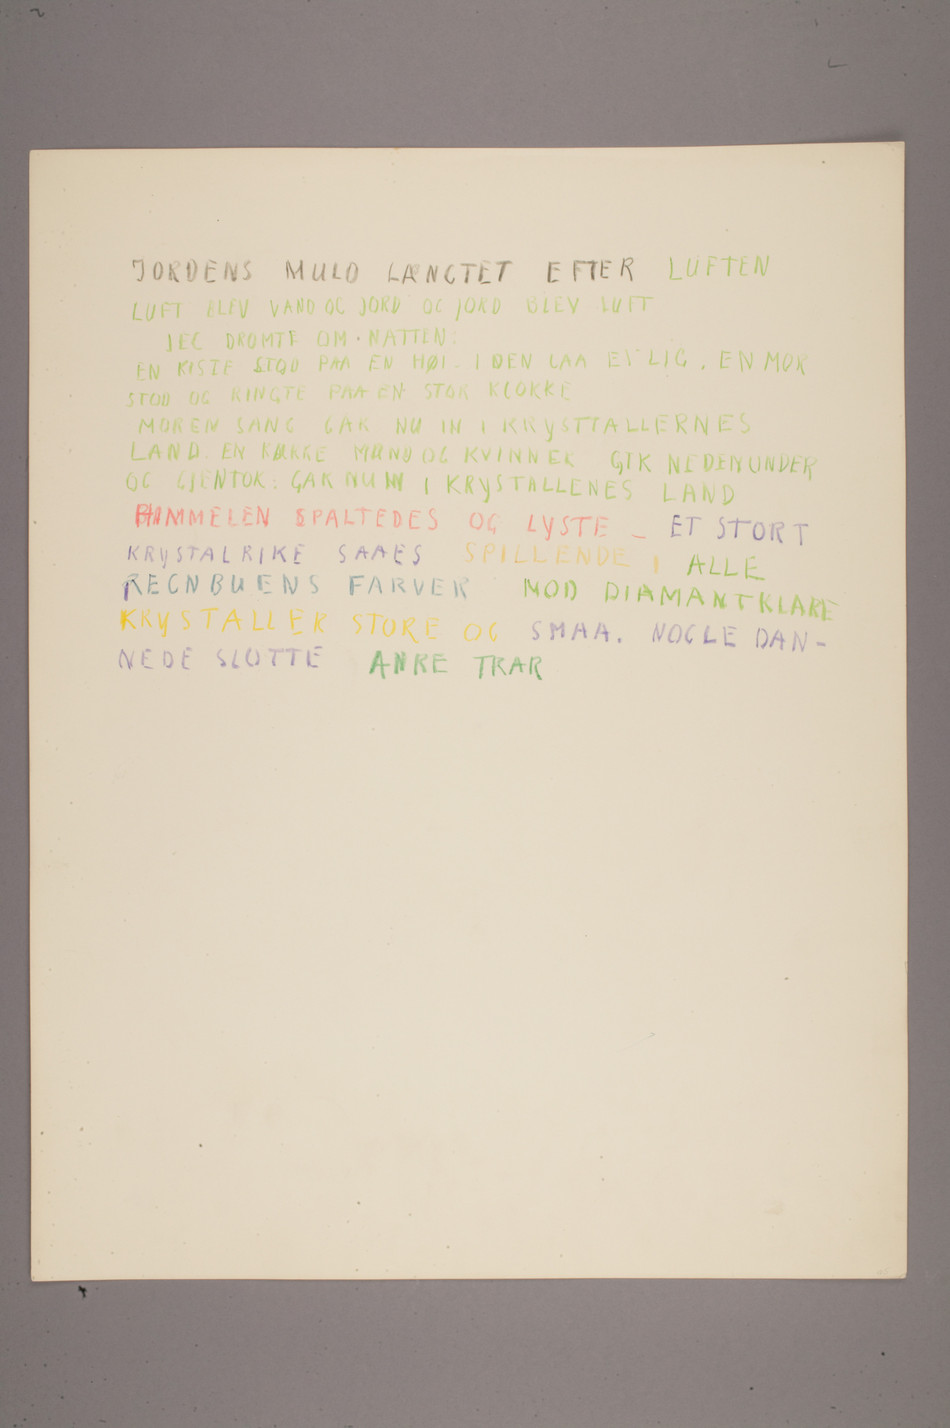 JORDENS MULD LÆNGTET EFTER LUFTEN
LUFT BLEV VAND OG JORD OG JORD BLEV LUFT
JEG DRØMTE OM NATTEN:
EN KISTE STOD PAA EN HØI. I DEN LAA ET LIG. EN MOR
STOD OG RINGTE PAA EN STOR KLOKKE
MOREN SANG GAK NU IN I KRYSTTALLERNES
LAND. EN RÆKKE MÆND OG KVINNER GIK NEDENUNDER
OG GJENTOK: GAK NU IN I KRYSTALLENES LAND
HIMMELEN SPALTEDES OG LYSTE – ET STORT
KRYSTALRIKE SAAES SPILLENDE I ALLE
REGNBUENS FARVER MOD DIAMANTKLARE
KRYSTALLER STORE OG SMAA. NOGLE DAN-
NEDE SLOTTE ANRE TRÆR